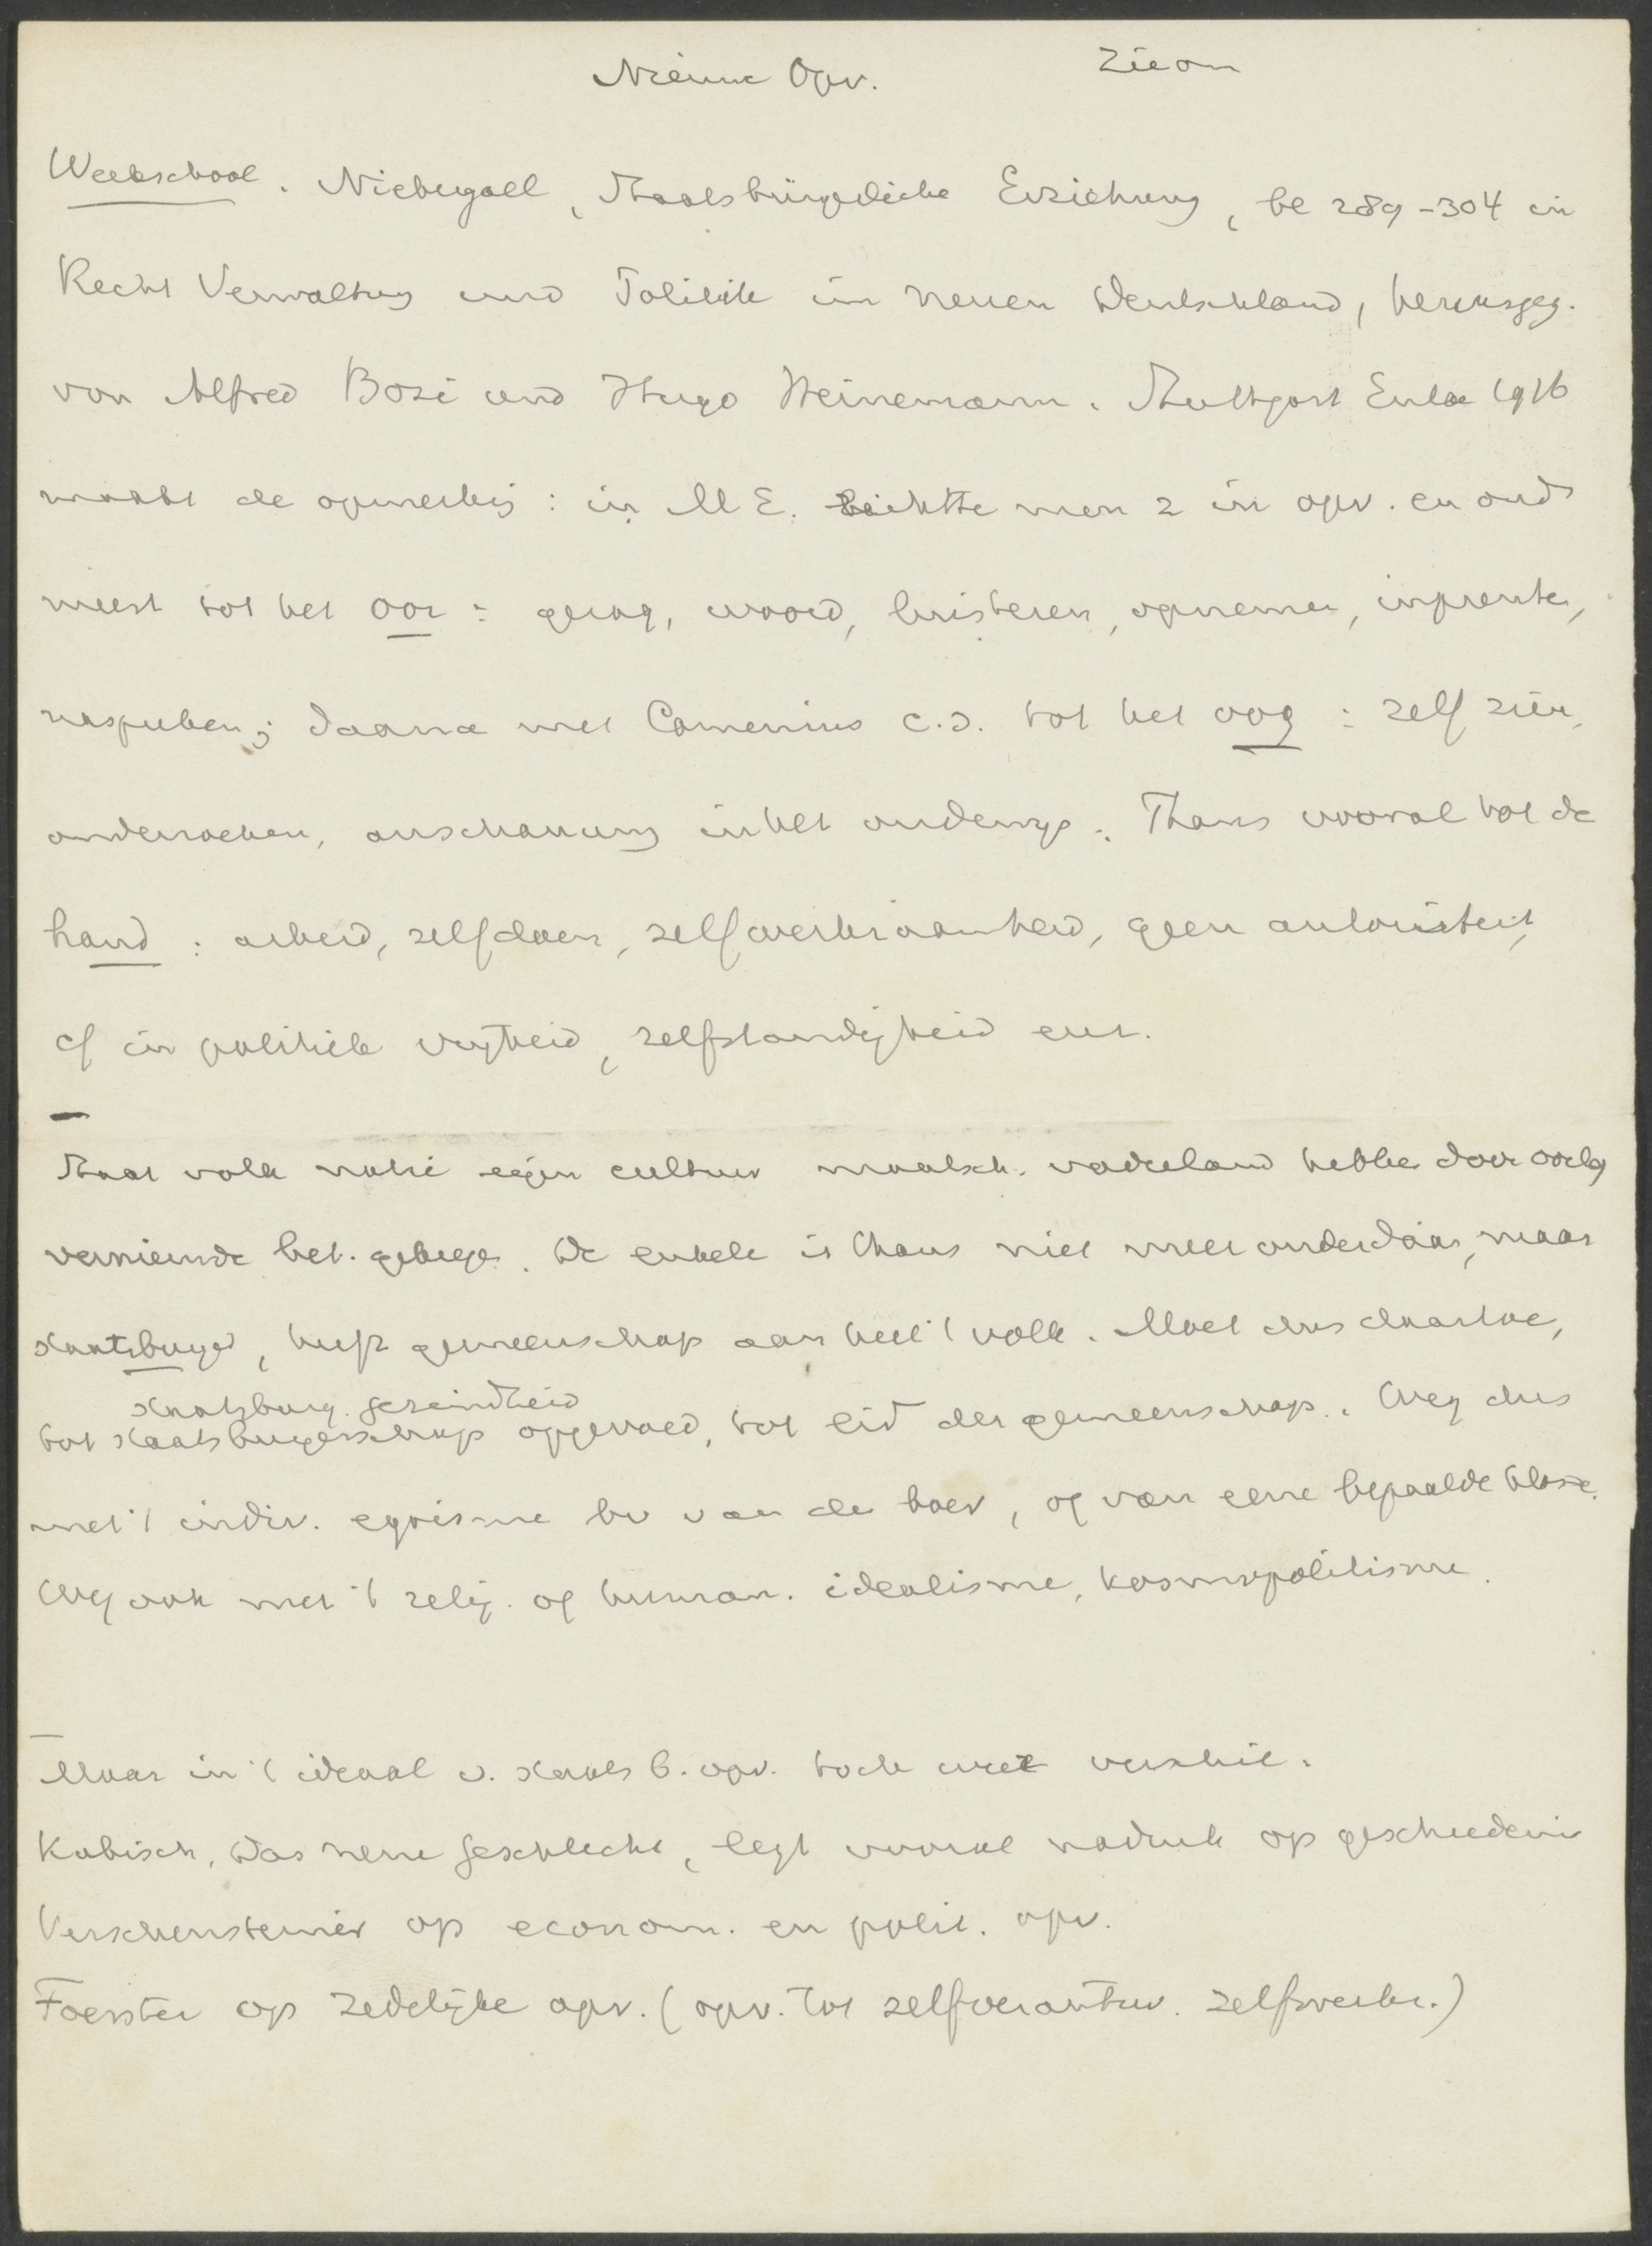 Nieuwe Opv. Zie om
Werkschool. Niebergall, Staatsbürgerliche Erziehung, bl 289-304 in
Recht Verwaltung und Politik im neuen Deutschland, herausgeg.
von Alfred Bozi und Hugo Heinemann. Stuttgart Enke 1916
maakt de opmerking: in M E. richtte men z in opv. en ond
meest tot het oor: gezag, woord, luisteren, opnemen, inprenten,
naspreken; daarna met Comenius c.s. tot het oog: zelf zien,
onderzoeken, anschauung in het onderwijs. Thans vooral tot de
hand: arbeid, zelf doen, zelfwerkzaamheid, geen autoriteit,
cf in politiek vrijheid, zelfstandigheid enz.
Staat volk natie eigen cultuur maatsch. vaderland hebben door oorlog
vernieuwde bet. gekregen. De enkele is thans niet meer onderdaan, maar
staatsburger, heeft gemeenschap aan heel 't volk. Moet dus daartoe,
staatsburg. gezindheid
tot staatsburgerschap opgevoed, tot lid der gemeenschap. Weg dus
met 't indiv. egoisme bv van de boer, of van eene bepaalde klasse.
Weg ook met 't relig. of human. idealisme, kosmopolitisme.
Maar in 't ideaal v. staatsb. opv. toch weer verschil.
Kabisch, Das neue Geschlecht, legt vooral nadruk op geschiedenis
Kerschensteiner op econom. en polit. opv.
Foerster op zedelijke opv. (opv. tot zelfverantw. zelfwerkz.)